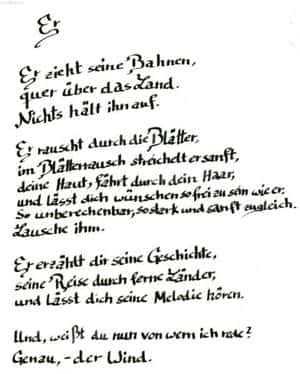 Er
Er zieht seine Bahnen,
quer über das Land.
Nichts hält ihn auf.
Er rauscht durch die Blätter,
im Blätterrausch streichelt er sanft,
deine Haut, fährt durch dein Haar,
und lässt dich wünschen so frei zu sein wie er.
So unberechenbar, so stark und sanft zugleich.
Lausche ihm.
Er erzählt dir seine Geschichte,
seine Reise durch ferne Länder,
und lässt dich seine Melodie hören.
Und, weißt du nun von wem ich rede?
Genau, - der Wind.